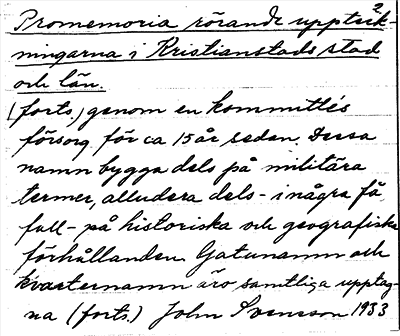 2.
Promemoria rörande uppteck-
ningarna i Kristianstads stad
och län.
(forts.) genom en kommittés
försorg för ca 15 år sedan. Dessa
namn bygga dels på militära
termer, alludera dels - i några få
fall - på historiska och geografiska
förhållanden. Gatunamn och
kvartersnamn äro samtliga upptag-
na (forts.) John Svensson 1933